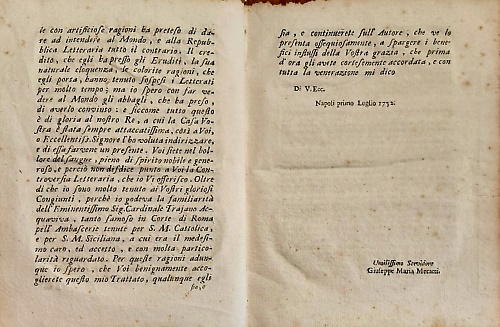 le con artificiose ragioni ha preteso di da-
re ad intendere al Mondo, e alla Repub-
blica Letteraria tutto il contrario. Il cre-
dito, che egli ha presso gli Eruditi, la sua
naturale eloquenza, le colorite ragioni, che
egli porta, hanno tenuto sospesi i Letterati
per molto tempo; ma io spero con far ve-
dere al Mondo gli abbagli, che ha preso,
di averlo convinto: e siccome tutto questo
è di gloria al nostro Re, a cui la Casa Vo-
stra è stata sempre attaccatissima, così a Voi,
o Eccellentiss. Signore l'ho voluta indirizzare,
e di essa farvene un presente. Voi siete nel bol-
lore del sangue, pieno di spirito nobile e gene-
roso, e perciò non disdice punto a Voi la Con-
troversia Letteraria, che io Vi offerisco. Oltre
di che io sono molto tenuto ai Vostri gloriosi
Congiunti, perchè io godeva la familiarità
dell'Eminentissimo Sig. Cardinale Trajano Ac-
quaviva, tanto famoso in Corte di Roma
pell' Ambascerie tenute per S. M. Cattolica,
e per S. M. Siciliana, a cui era il medesi-
mo caro, ed accetto, e con molta partico-
larità riguardato. Per queste ragioni adun-
que io spero, che Voi benignamente acco-
glierete questo mio Trattato, qualunque egli
sia, e continuerete sull' Autore, che ve lo
presenta ossequiosamente, a spargere i bene-
fici influssi della Vostra grazia, che prima
d'ora gli avete cortesemente accordata, e con
tutta la venerazione mi dico
Di V. Ecc.
Napoli primo Luglio 1752.
Umilissimo Servidore
Giuseppe Maria Mecatti.